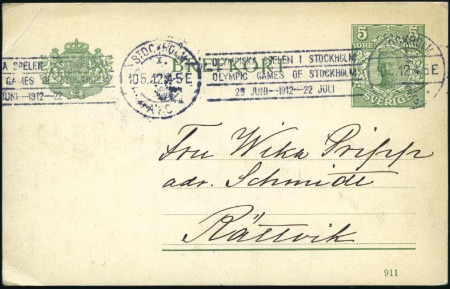 STOCKHOLM
1.
10.5.12.4-5E
BREFKORT
A SPELEN
GAMES OF
JUNI-1912-22
OLYMPISKA SPELEN I STOCKHOLM
OLYMPIC GAMES OF STOCKHOLM
29 JUNI-1912-22 JULI
5 5
ÖRE
SVERIGE
STOCKHOLM
12.4-5E
Fru Wika Pripp
adr. Schmidt
Rättvik
911